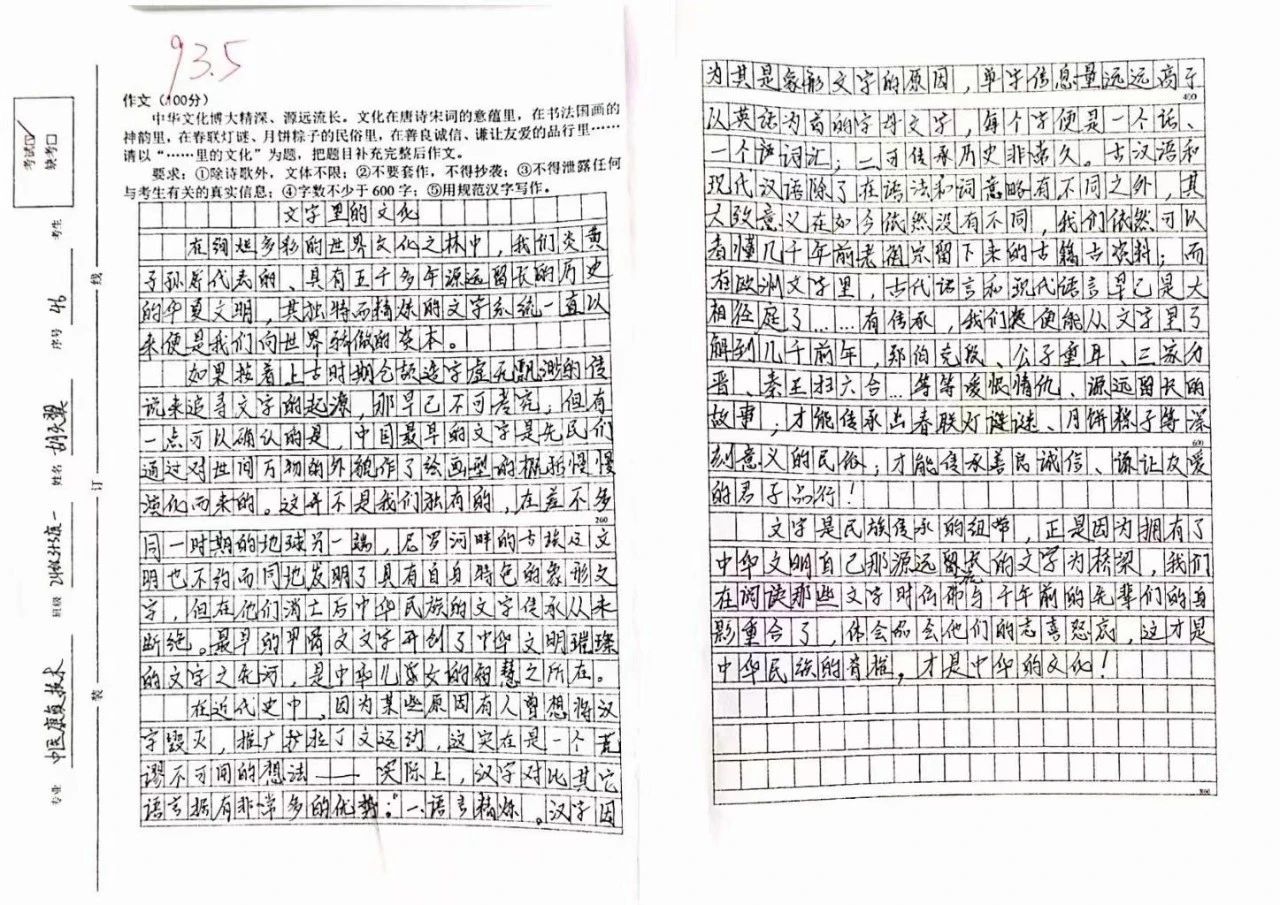 93.5
作文（100分）
中华文化博大精深、源远流长。文化在唐诗宋词的意蕴里，在书法国画的
神韵里，在春联灯谜、月饼粽子的民俗里，在善良诚信、谦让友爱的品行里……
请以“……里的文化”为题，把题目补充完整后作文。
要求：①除诗歌外，文体不限；②不要套作，不得抄袭；③不得泄露任何
与考生有关的真实信息；④字数不少于600字；⑤用规范汉字写作。
文字里的文化
在绚烂多彩的世界文化之林中，我们炎黄
子孙所代表的、具有五千多年源远留长的历史
的华夏文明，其独特而精炼的文字系统一直以
来便是我们向世界骄傲的资本。
如果按着上古时期仓颉造字虚无飘渺的传
说来追寻文字的起源，那早已不可考究，但有
一点可以确认的是，中国最早的文字是先民们
通过对世间万物的外貌作了绘画型的概括慢慢
演化而来的。这并不是我们独有的，在差不多
200
同一时期的地球另一端，尼罗河畔的古埃及文
明也不约而同地发明了具有自身特色的象形文
字，但在他们消亡后中华民族的文字传承从未
断绝。最早的甲骨文文字开创了中华文明璀璨
的文字之先河，是中华儿女的智慧之所在。
在近代史中，因为某些原因有人曾想将汉
字毁灭，推广拉丁文运动，这实在是一个荒
谬不可闻的想法——实际上，汉字对比其它
语言拥有非常多的优势：一、语言精炼。汉字因
为其是象形文字的原因，单字信息量远远高于
400
以英语为首的字母文字，每个字便是一个话、
一个词汇；二可传承历史非常久。古汉语和
现代汉语除了在语法和词意略有不同之外，其
大致意义在如今依然没有不同，我们依然可以
看懂几千年前老祖宗留下来的古籍古资料；而
在欧洲文字里，古代语言和现代语言早已是大
相径庭了……有传承，我们便能从文字里了
解到几千前年，郑伯克段、公子重耳、三家分
晋、秦王扫六合…等等爱恨情仇、源远留长的
故事；才能传承出春联灯谜、月饼粽子等深
600
刻意义的民俗；才能传承善良诚信、谦让友爱
的君子品行！
文字是民族传承的纽带，正是因为拥有了
中华文明自己那源远留长的文字为桥梁，我们
在阅读那些文字时仿佛与千年前的先辈们的身
影重合了，体会品会他们的志喜怒哀，这才是
中华民族的脊椎，才是中华的文化！
800
考试
缺考
考生
序号
姓名 胡天翼
班级
专业 中医康复技术
线
订
装